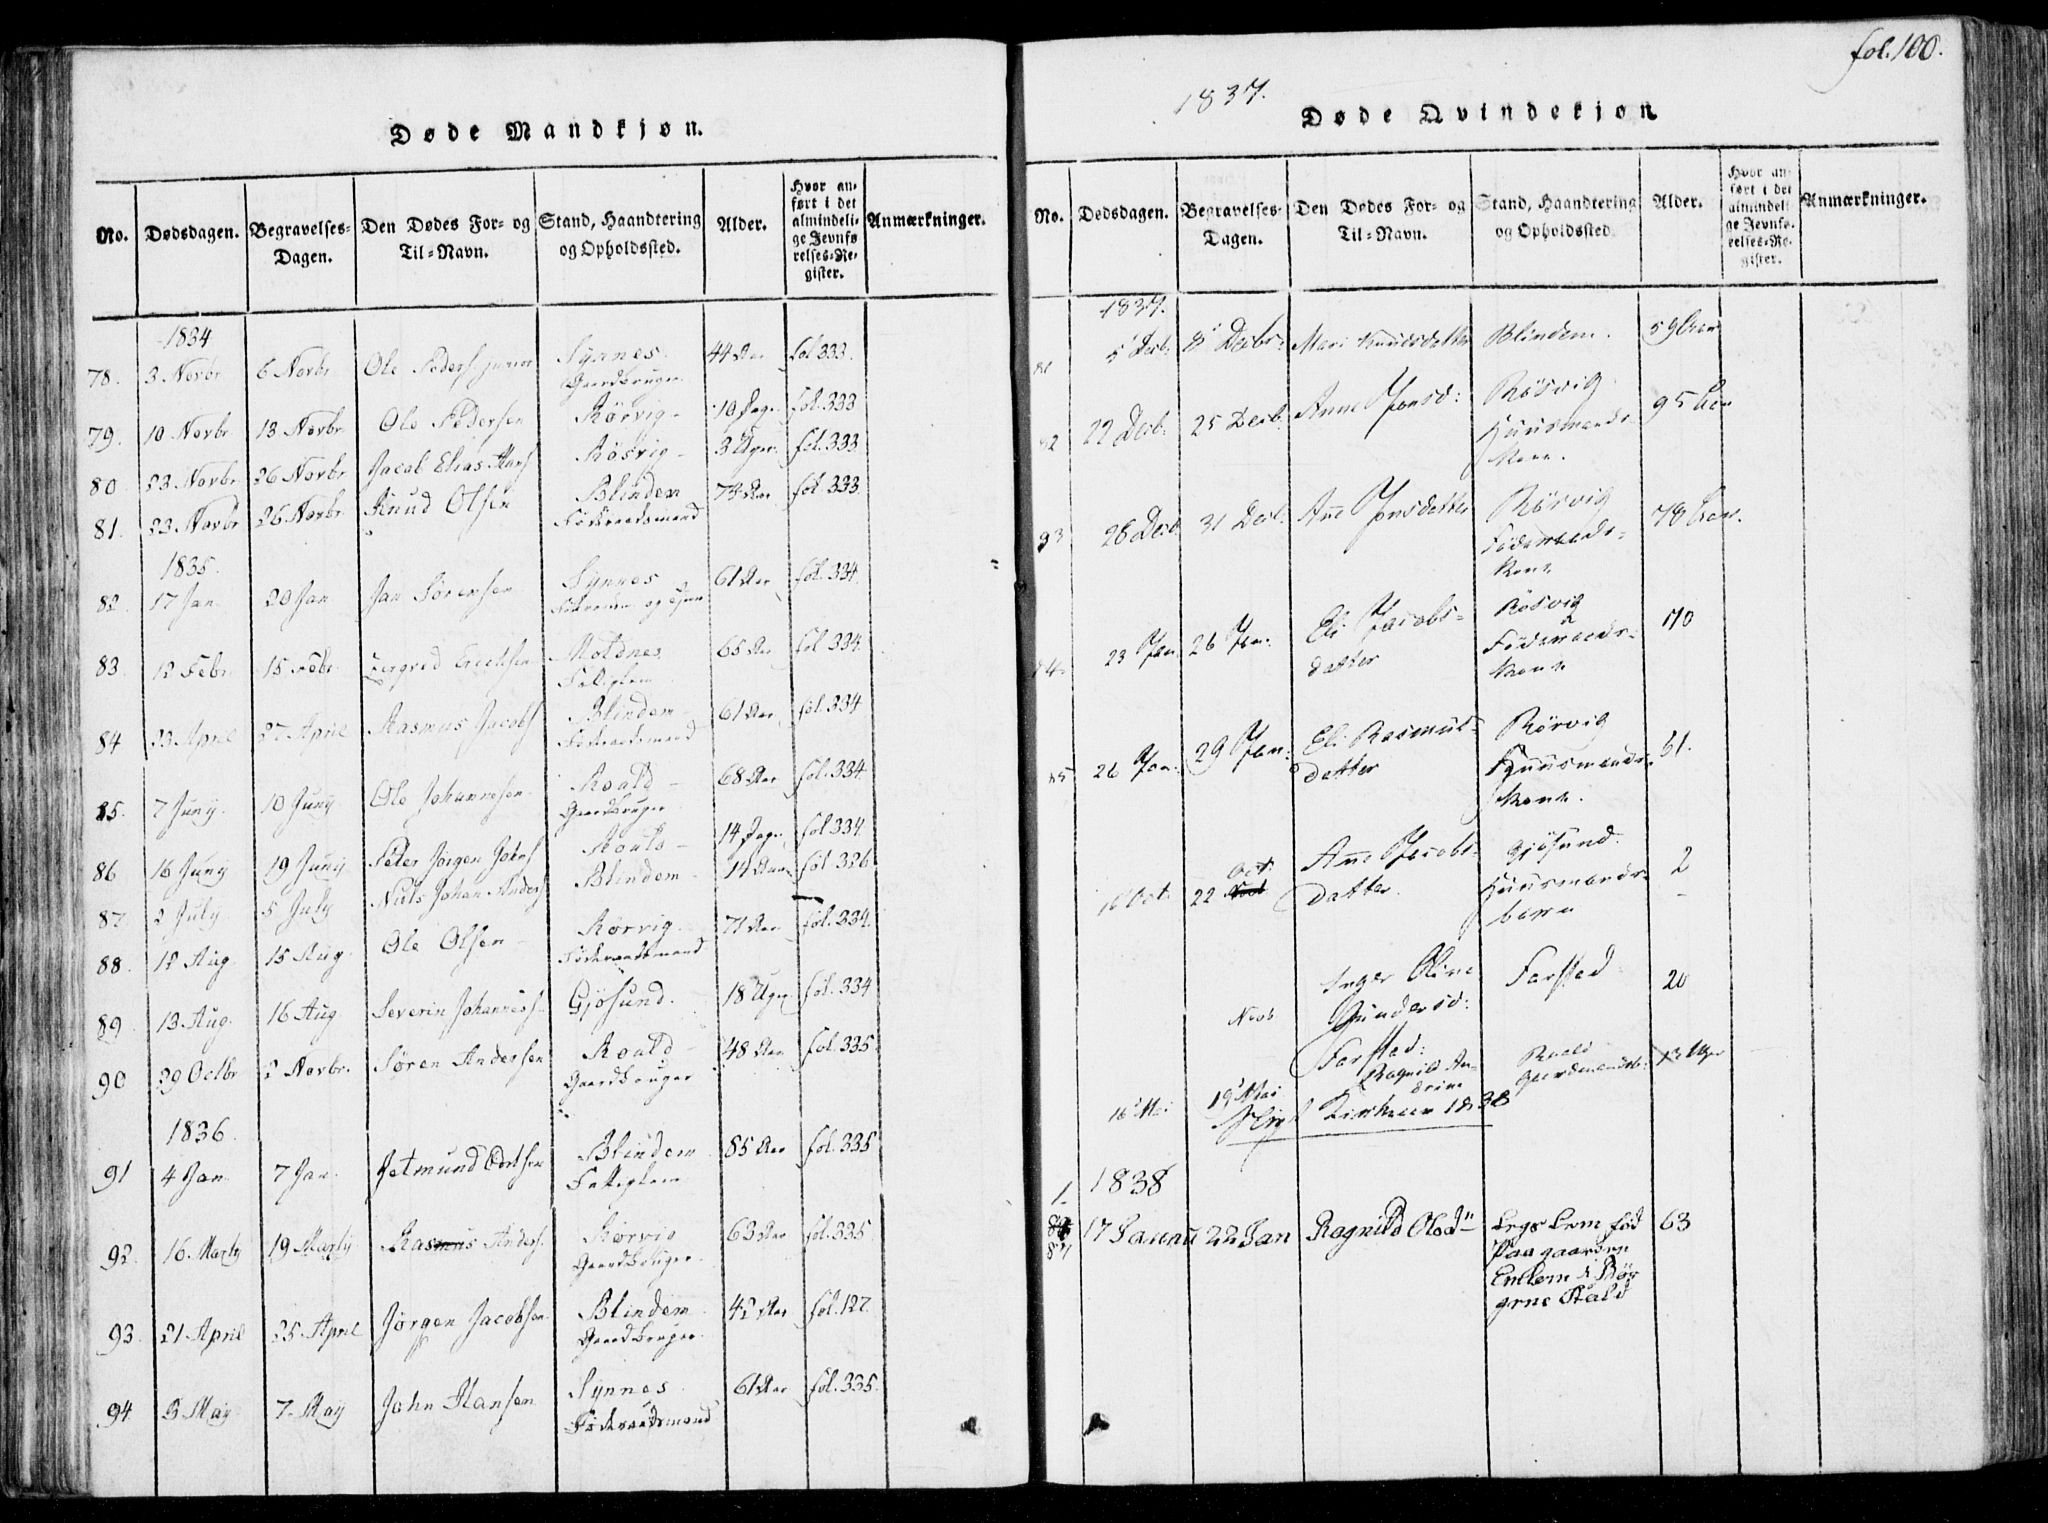 Døde Mandkjøn.
No. Dødsdagen. Begravelses-Dagen. Den Dødes For- og Til-Navn. Stand, Haandtering og Opholdssted. Alder. Hvor anført i det almindelige Jevnførelses-Register. Anmærkninger.
1834
78. 3 Novbr 6 Novbr Ole Peders. junior Synnes Gaardbruger 44 Aar fol 333.
79. 10 Novbr 13 Novbr Ole Pedersen Rørvig 10 Dage fol. 333
80 23 Novbr 26 Novbr Jacob Elias Hans Røsvig 3 Uger fol. 333
81. 23 Novbr 26 Novbr Knud Olsen Blindem Føderaadsmand 73 Aar fol 333.
1835.
82. 17 Jan 20 Jan Jan Sørensen Synnes 61 Aar fol. 334.
83. 12 Febr 15 Febr Moldnes Fattiglem 65 Aar fol 334.
84 23 April 27 April Rasmus Jacobs Blindem Føderaadsmand 61 Aar fol. 334
85. 7 Juny 10 Juny Ole Johannesen Roald Gaardbruger 68 Aar fol. 334
86 16 Juny 19 Juny Peter Jørgen Johns Roald 14 Dage fol 334.
87. 2 July 5 July Niels Johan Anders Blindem 14 fol. 326
88. 12 Aug. 15 Aug. Ole Olsen Rørvig Føderaadsmand 71 Aar fol. 334.
89. 13 Aug. 16 Aug. Severin Johannes Gjøsund. 18 Uger fol. 334
90 29 Octbr 2 Novbr. Søren Andersen Roald Gaardbruger 48 Aar fol. 335
1836.
91 4 Jan 7 Jan. Jetmund Blindem Fattiglem 85 Aar fol. 335
92. 16 Marty 19 Marty Rasmus Anders. Rørvig Gaardbruger 63 Aar fol. 335.
93. 21 April 25 April Jørgen Jacobsen Blindem Gaardbruger 42 Aar fol. 127.
94. 3 May 7 May John Hansen Synnes Føderaadsmand 61 Aar fol. 335.
fol. 100.
1837.
Døde Qvindekjøn
No. Dødsdagen. Begravelses-Dagen. Den Dødes For- og Til-Navn. Stand, Haandtering og Opholdssted. Alder. Hvor anført i det almindelige Jevnførelses-Register. Anmærkninger.
1837.
5 Decb. 8 Decbr. Mari Knudsdatter Blindem. 59 Aar
22 Decb. 25 Decb. Anne Jonsd: Røsvig Huusmands Kone. 95 Aar
28 Decb 31 Decb. Ane Jonsdatter Rörvig Födemands- Kone 78 Aar.
23 Jan 26 Jan. Eli Jacobs- datter Rösvig Födemands- Kone 70
26 Jan. 29 Jan. Eli Rasmus- datter Rörvig Huusmands- Kone. 61.
16 Oct. 22 Oct. Ane Jacobs- datter. Gjösund. Huusmands- barn 2
Novb Inger Oline Gundersd: Farstad: Farstad 20
16 Mai 19 Mai Ragnild An- drine Roald Gaardmandsb. 13 Uger
1838
1838
1. 17 Januu 22 Jan Ragnild Olsd Legs Lem fød paa gaarden Emblem i Bör grne Stald 63